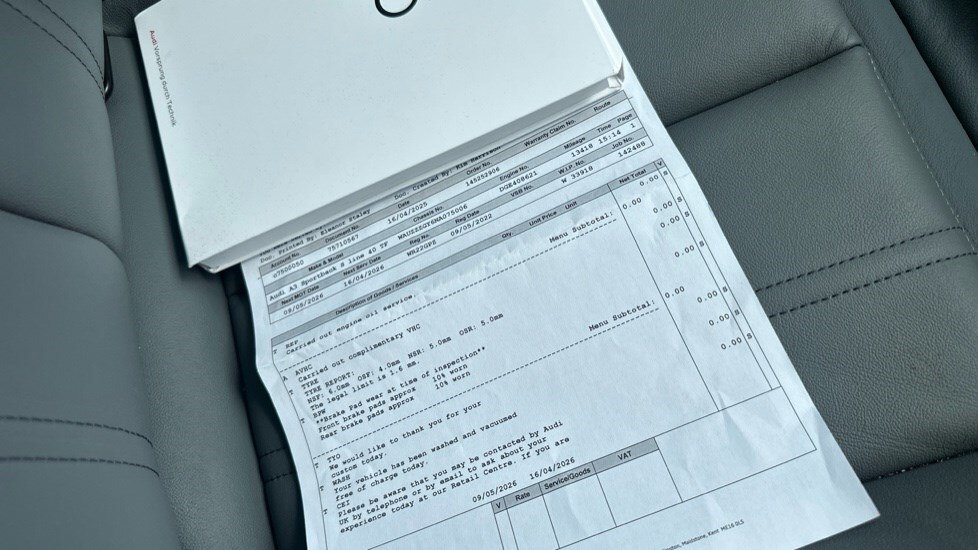 Audi Vorsprung durch Technik
Doc. Created By: Kim Harrison
Doc. Printed By: Eleanor Staley
Account No. Document No Date Order No. Warranty Claim No. Route
07500050 75710567 16/04/2025 145252906
Make & Model Chassis No. Engine No. Mileage Time Page
Audi A3 Sportback S line 40 TF WAUZZZGY6NA075006 DGE408621 13410 15:14 1
Next MOT Date Next Serv Date Reg No. Reg Date VSB No. W.I.P. No. Job No.
09/05/2026 16/04/2026 WR22GPZ 09/05/2022 W 33918 142488
Description of Goods / Services Qty Unit Price Unit Net Total V
T REF 0.00 S
Carried out engine oil service.
Menu Subtotal: 0.00 0.00 S
A AVHC 0.00 S
Carried out complimentary VHC
T TYRE 0.00 S
TYRE REPORT:
NSF: 6.0mm OSF: 4.0mm NSR: 5.0mm OSR: 5.0mm
The legal limit is 1.6 mm.
T BPW
**Brake Pad wear at time of inspection**
Front brake pads approx 10% worn
Rear brake pads approx 10% worn
Menu Subtotal: 0.00 0.00 S
T TYO 0.00 S
We would like to thank you for your
custom today.
T WASH 0.00 S
Your vehicle has been washed and vacuumed
free of charge today.
T CEI
Please be aware that you may be contacted by Audi
UK by telephone or by email to ask about your
experience today at our Retail Centre. If you are
09/05/2026 16/04/2026
V Rate Service/Goods VAT
Maidstone, Kent ME16 0LS